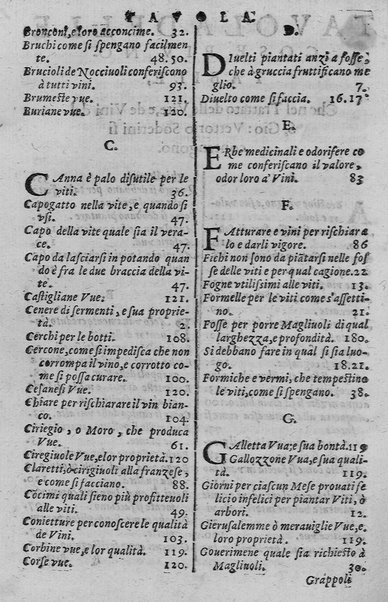 TAVOLA.
Bronconi, e loro acconcime. 32.
Bruchi come si spengano facilmen-
te. 48.50.
Brucioli de Nocciuoli conferiscono
à tutti vini. 93.
Brumeste vue. 121.
Buriane vue. 120.
C.
CAnna è palo disutile per le
viti. 36.
Capogatto nella vite, e quando si
vsi. 47.
Capo della vite quale sia il vera-
ce. 47.
Capo da lasciarsi in potando quan
do è fra le due braccia della vi-
te. 47.
Castigliane Vue. 121.
Cenere di sermenti, e sua proprie-
tà. 2.
Cerchi per le botti. 108.
Cercone, come si impedisca che non
corrompa il vino, e corrotto co-
me si possa curare. 120.
Cesanesi Vue. 120.
Chiare per rischiarare il vin bian-
co. 104.
Ciriegio, o Moro, che produca
Vue. 61.
Ciregiuole Vue, e lor proprietà. 120
Claretti, ò cirigiuoli alla franzese,
e come si facciano. 88.
Cocimi quali sieno più profitteuoli
alle viti. 49.
Conietture per conoscere le qualità
de Vini. 103.
Corbine vue, e lor qualità. 119.
Corse vue. 120.
D.
DIuelti piantati anzi a fosse,
che à gruccia fruttificano me
glio. 7.
Diuelto come si faccia. 16.17.
E.
ERbe medicinali e odorifere co
me conferiscano il valore,
odor loro a' Vini. 83
F.
FAtturare e vini per rischiara
lo e darli vigore. 86
Fichi non sono da piātarsi nelle fos
se delle viti e per qual cagione. 22
Fogne vtilissimi alle viti. 13.
Formelle per le viti come s'assetti-
no. 21.
Fosse per porre Magliuoli di qual
larghezza, e profondità. 180.
Si debbano fare in qual si sia luo-
go. 18.21.
Formiche e vermi, che tempestino
le viti, come si spengano. 38.
G.
GAlletta Vua; e sua bontà. 119
Gallozzone Vua; e sua quali-
tà. 119.
Giorni per ciascun Mese prouati se
licio infelici per piantar Viti, ò
arbori. 12.
Gierusalemme ò merauiglie Vue, e
loro proprietà. 119.
Gouerimene quale sia richiesto à
Magliuoli. 30.
Grappoli